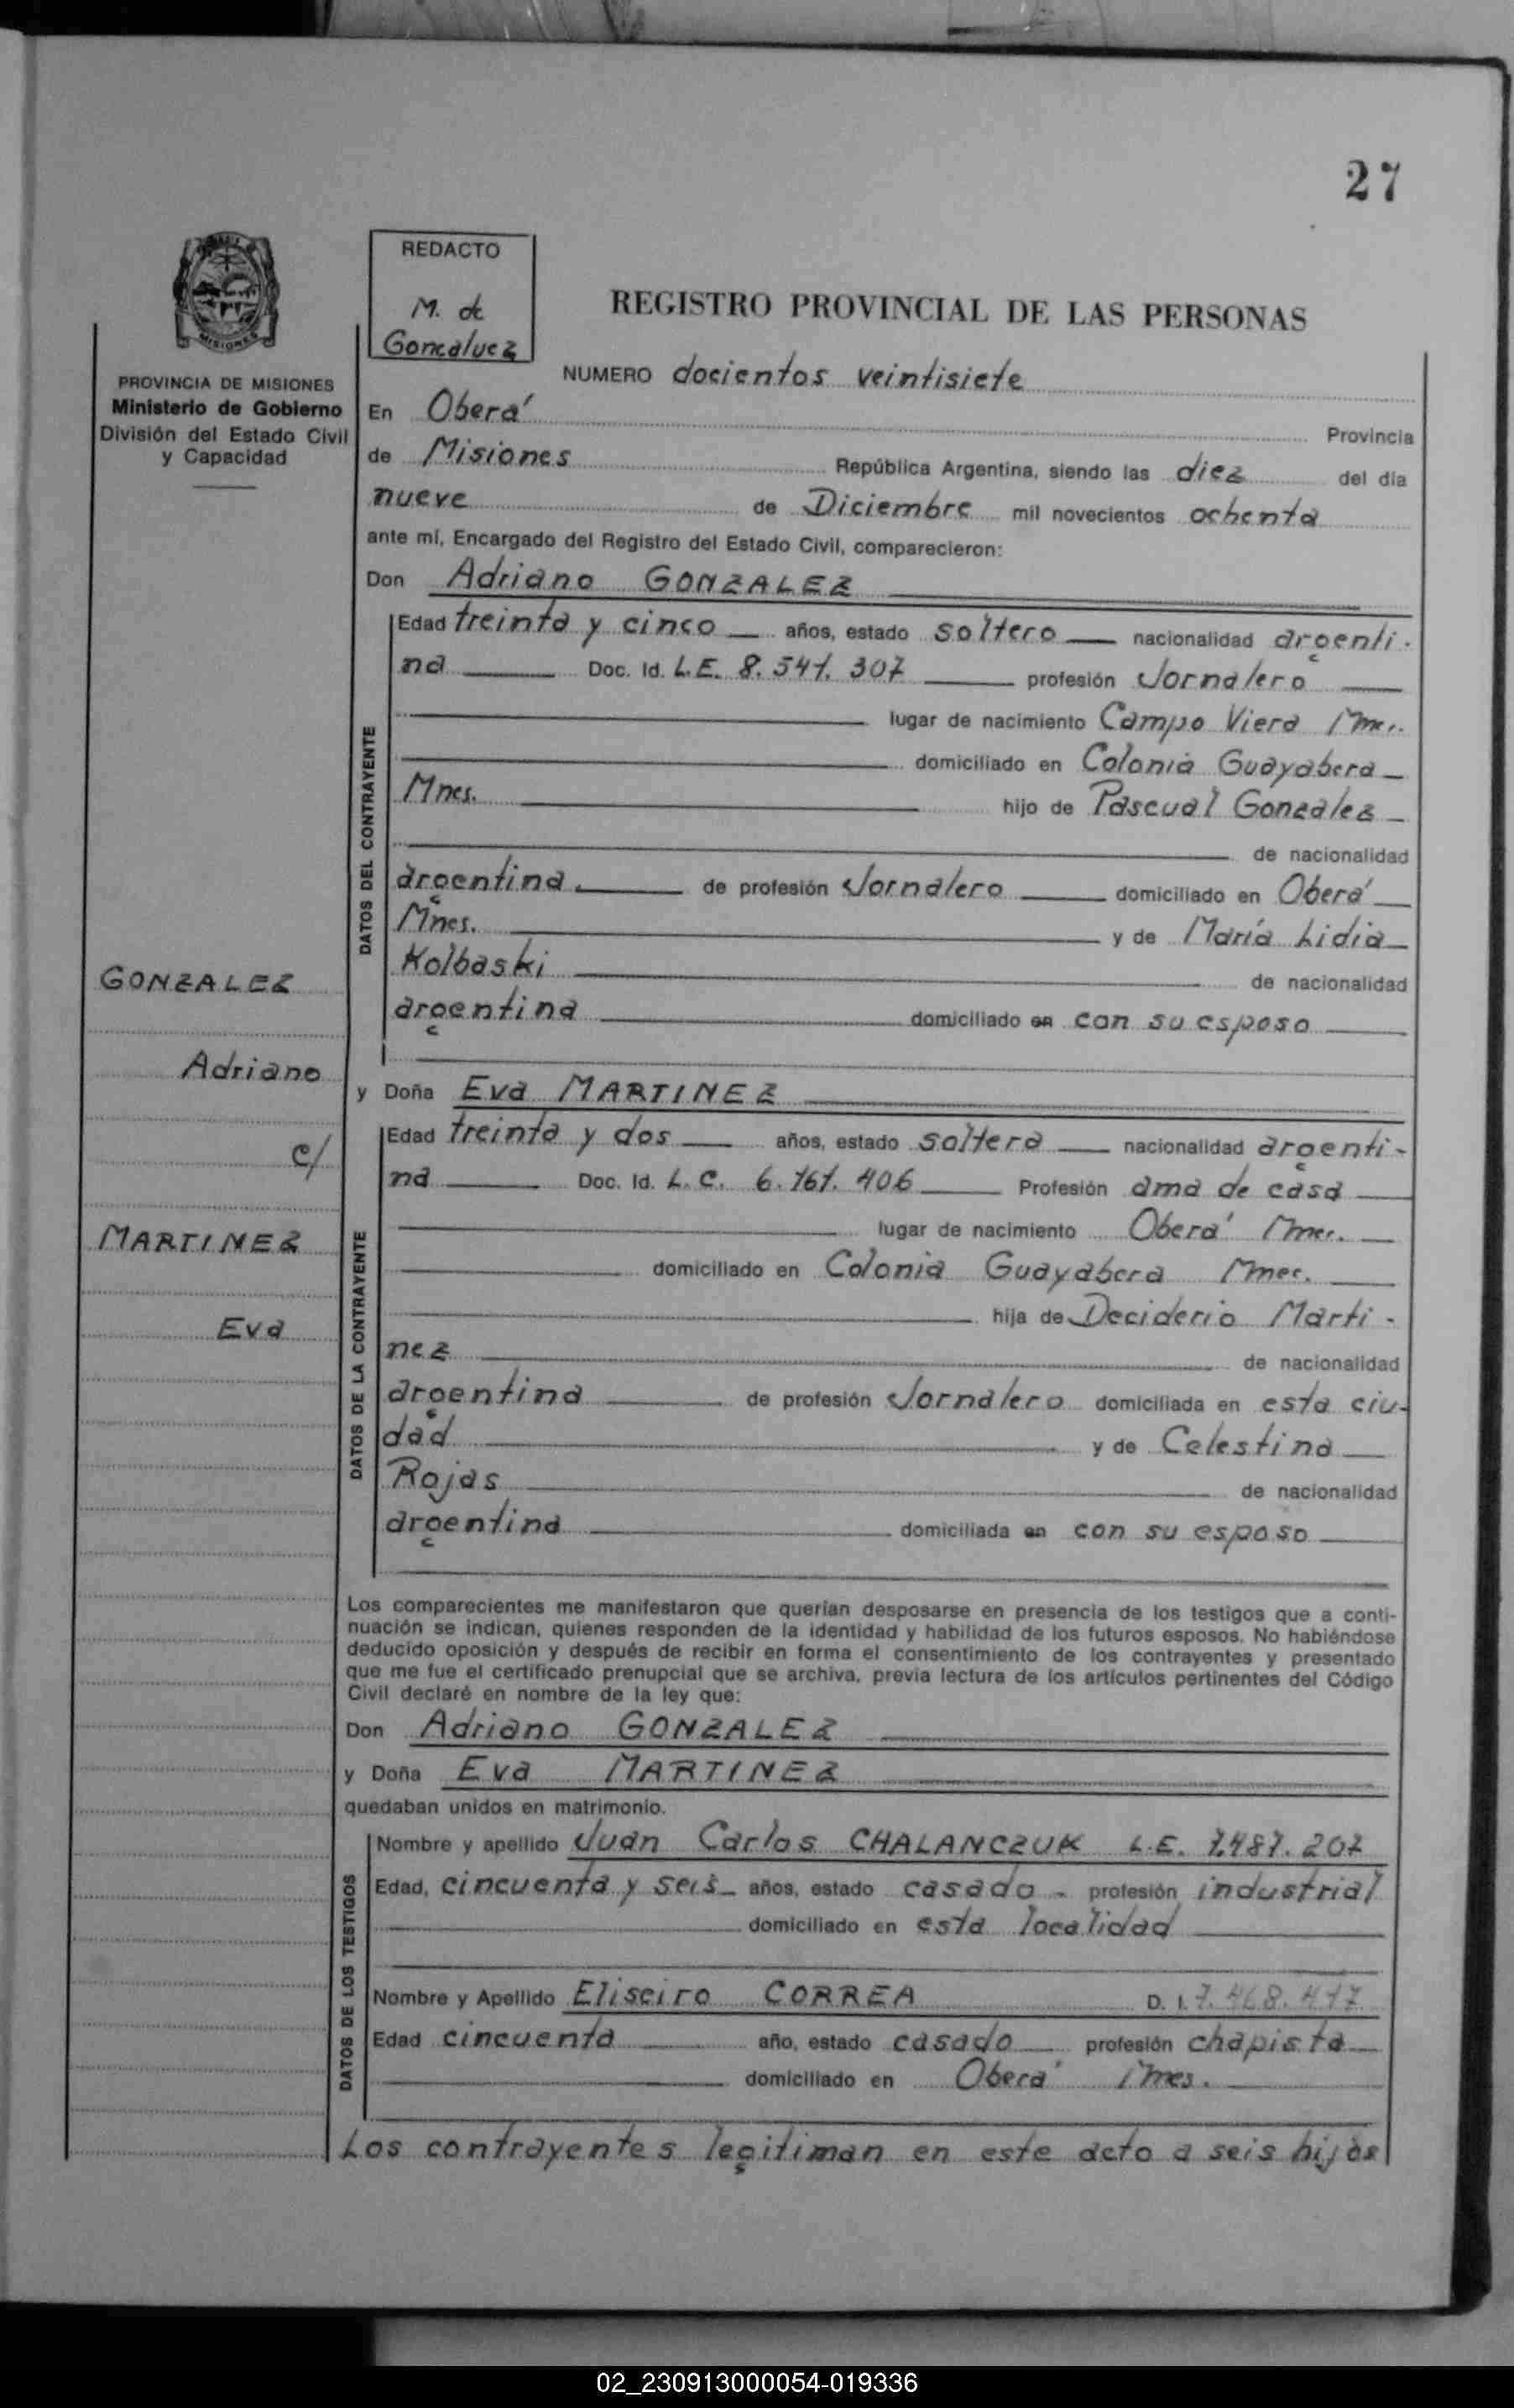 27
REDACTO
M. de
Goncalvez
REGISTRO PROVINCIAL DE LAS PERSONAS
MISIONES
PROVINCIA DE MISIONES
Ministerio de Gobierno
División del Estado Civil
y Capacidad
NUMERO docientos veintisiete
En Oberá Provincia
de Misiones República Argentina, siendo las diez del día
nueve de Diciembre mil novecientos ochenta
ante mí, Encargado del Registro del Estado Civil, comparecieron:
Don Adriano GONZALEZ
DATOS DEL CONTRAYENTE
Edad treinta y cinco años, estado soltero nacionalidad argenti-
na Doc. Id. L.E. 8.541.307 profesión Jornalero
lugar de nacimiento Campo Viera Mnes.
domiciliado en Colonia Guayabera
Mnes. hijo de Pascual Gonzalez
de nacionalidad
argentina. de profesión Jornalero domiciliado en Oberá
Mnes. y de María Lidia
Kolbaski de nacionalidad
argentina domiciliado en con su esposo
GONZALEZ
Adriano
c/
MARTINEZ
Eva
y Doña Eva MARTINEZ
DATOS DE LA CONTRAYENTE
Edad treinta y dos años, estado soltera nacionalidad argenti-
na Doc. Id. L.C. 6.161.406 Profesión ama de casa
lugar de nacimiento Oberá Mnes.
domiciliado en Colonia Guayabera Mnes.
hija de Deciderio Marti-
nez de nacionalidad
argentina de profesión Jornalero domiciliada en esta ciu-
dad y de Celestina
Rojas de nacionalidad
argentina domiciliada en con su esposo
Los comparecientes me manifestaron que querían desposarse en presencia de los testigos que a conti-
nuación se indican, quienes responden de la identidad y habilidad de los futuros esposos. No habiéndose
deducido oposición y después de recibir en forma el consentimiento de los contrayentes y presentado
que me fue el certificado prenupcial que se archiva, previa lectura de los artículos pertinentes del Código
Civil declaré en nombre de la ley que:
Don Adriano GONZALEZ
y Doña Eva MARTINEZ
quedaban unidos en matrimonio.
DATOS DE LOS TESTIGOS
Nombre y apellido Juan Carlos CHALANCZUK L.E. 7.487.207
Edad, cincuenta y seis años, estado casado profesión industrial
domiciliado en esta localidad
Nombre y Apellido Eliseiro CORREA D. I. 7.468.417
Edad cincuenta año, estado casado profesión chapista
domiciliado en Oberá Mnes.
Los contrayentes legitiman en este acto a seis hijos
02_230913000054-019336